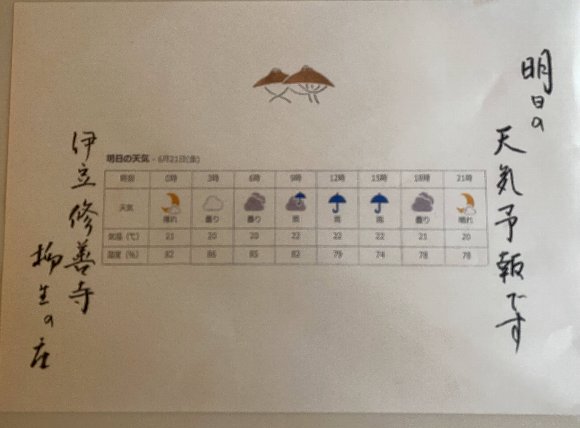 明日の
天気予報です
明日の天気 - 6月21日(金)
時刻 0時 3時 6時 9時 12時 15時 18時 21時
天気 晴れ 曇り 曇り 雨 雨 雨 曇り 晴れ
気温 (℃) 21 20 20 22 22 22 21 20
湿度 (%) 82 86 85 82 79 74 78 78
伊立修善寺
柳生の庄